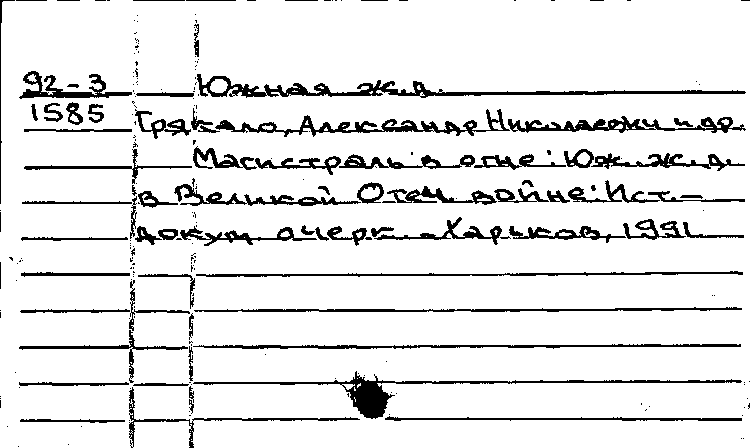 92-3 Южная ж.д.
1585 Трякало, Александр Николаевич и др.
Магистраль в огне: Юж. ж.д.
в Великой Отеч. войне: Ист.-
докум. очерк. - Харьков, 1991.